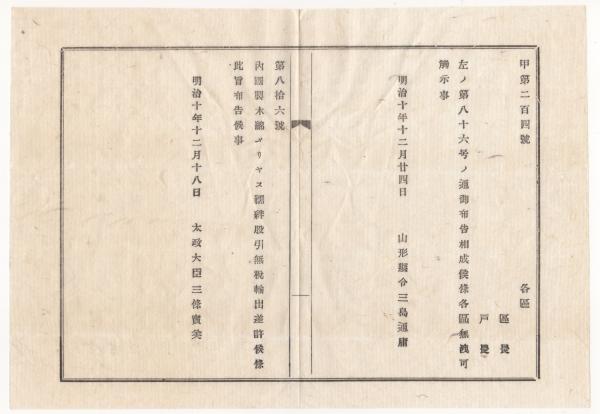 甲第二百四號
各區
區長
戸長
左ノ第八十六号ノ通御布告相成候條各區無洩可
觸示事
明治十年十二月廿四日 山形縣令三島通庸
第八拾六號
內國製木綿メリヤス襦袢股引無稅輸出差許候條
此旨布告候事
明治十年十二月十八日 太政大臣三條實美